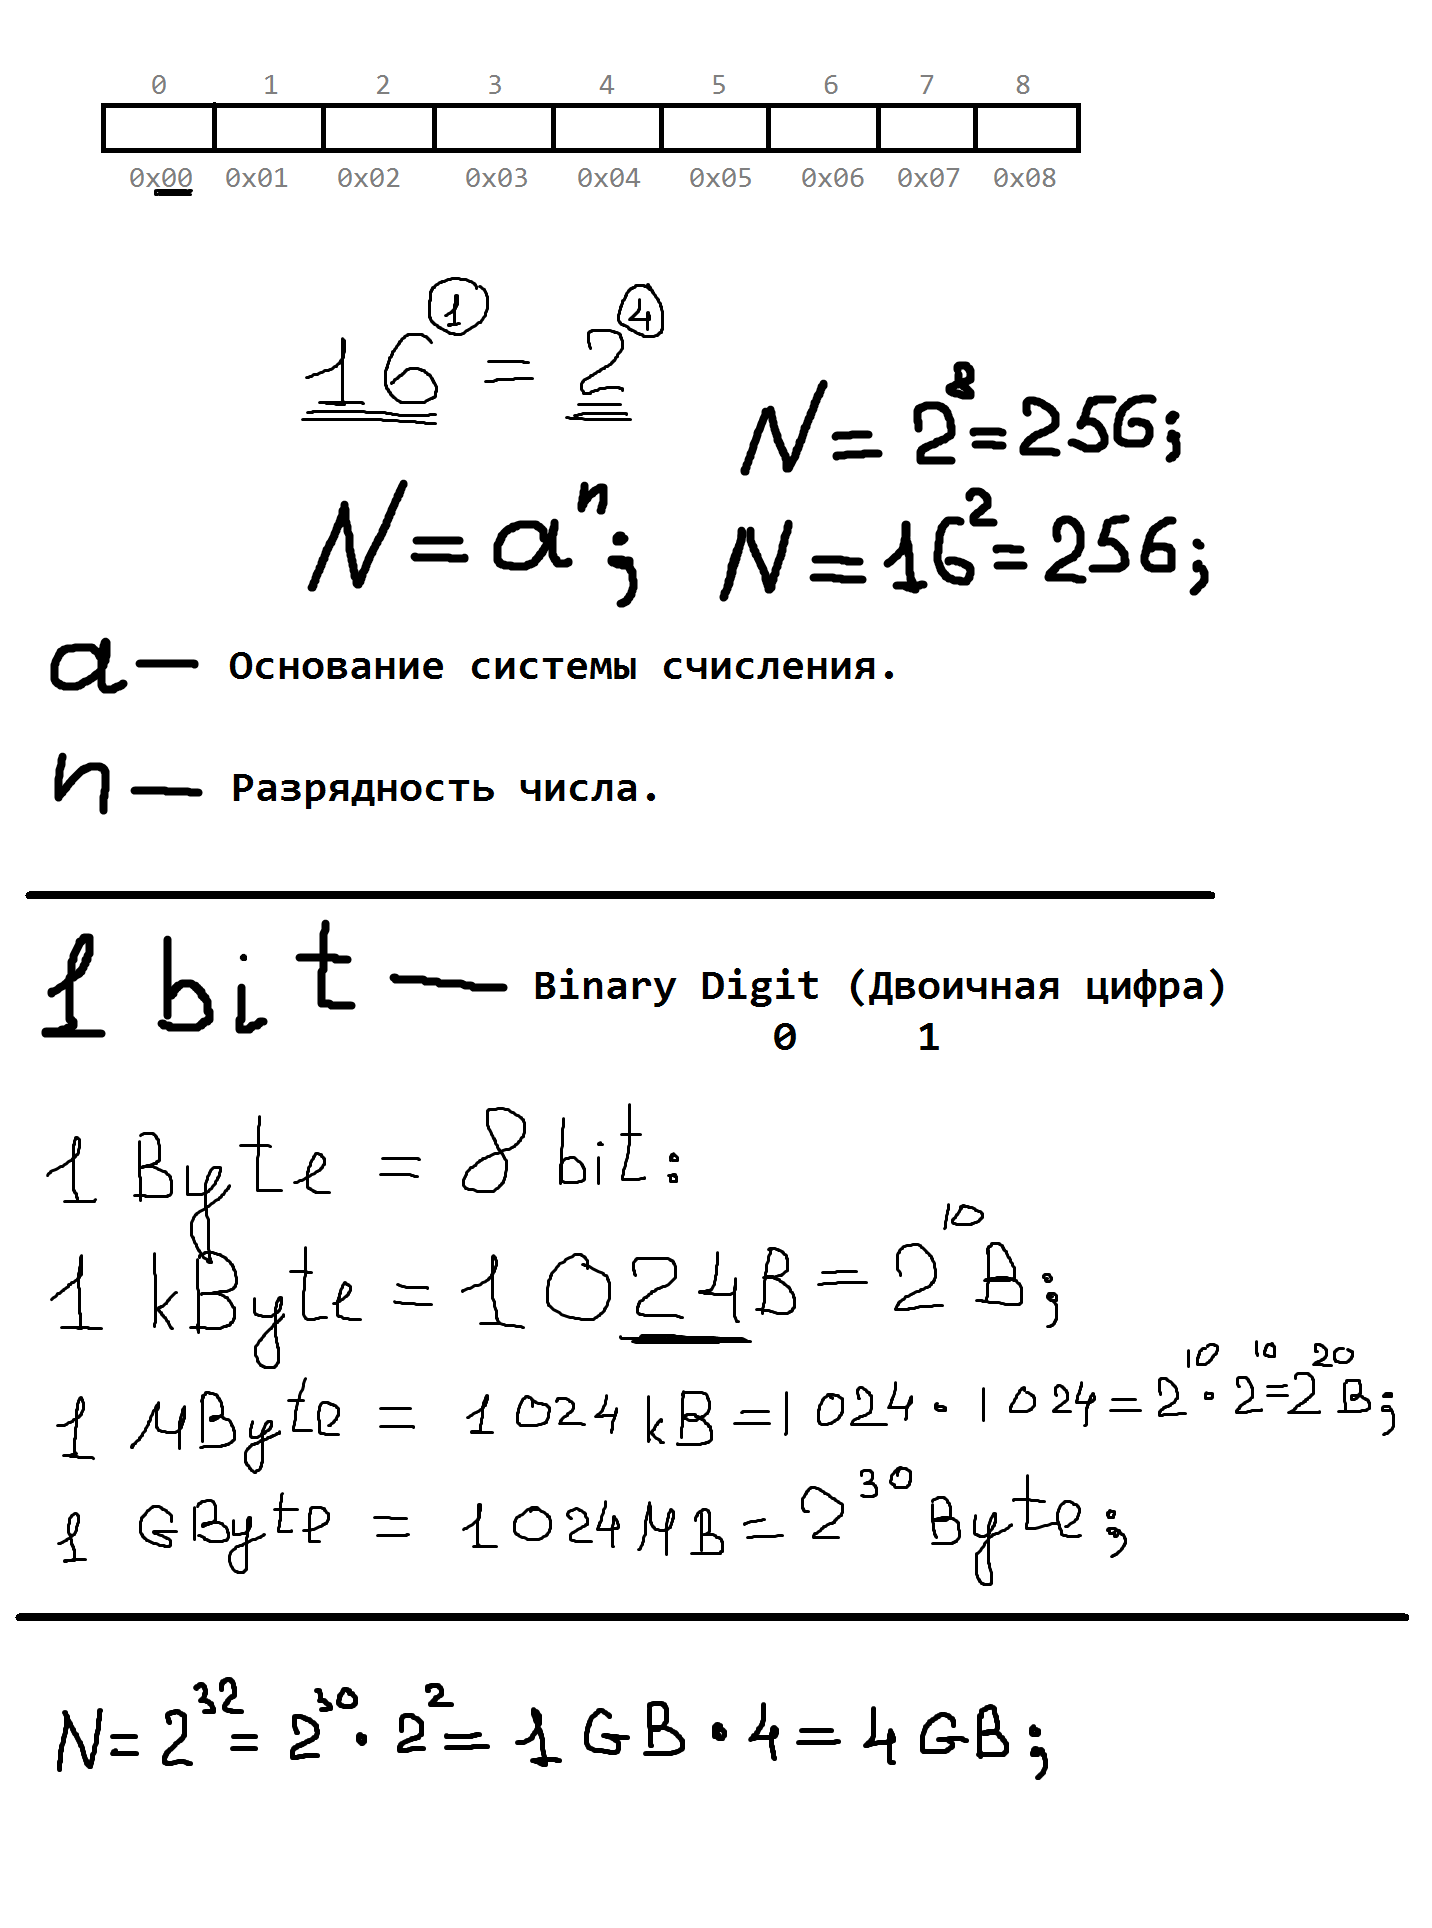 0 1 2 3 4 5 6 7 8
0x00 0x01 0x02 0x03 0x04 0x05 0x06 0x07 0x08
16¹ = 2⁴
N = 2⁸ = 256;
N = aⁿ;
N = 16² = 256;
a — Основание системы счисления.
n — Разрядность числа.
1 bit — Binary Digit (Двоичная цифра)
0 1
1 Byte = 8 bit:
1 kByte = 1024B = 2¹⁰B;
1 MByte = 1024kB = 1024 · 1024 = 2¹⁰ · 2¹⁰ = 2²⁰B;
1 GByte = 1024MB = 2³⁰Byte;
N = 2³² = 2³⁰ · 2² = 1 GB · 4 = 4 GB;